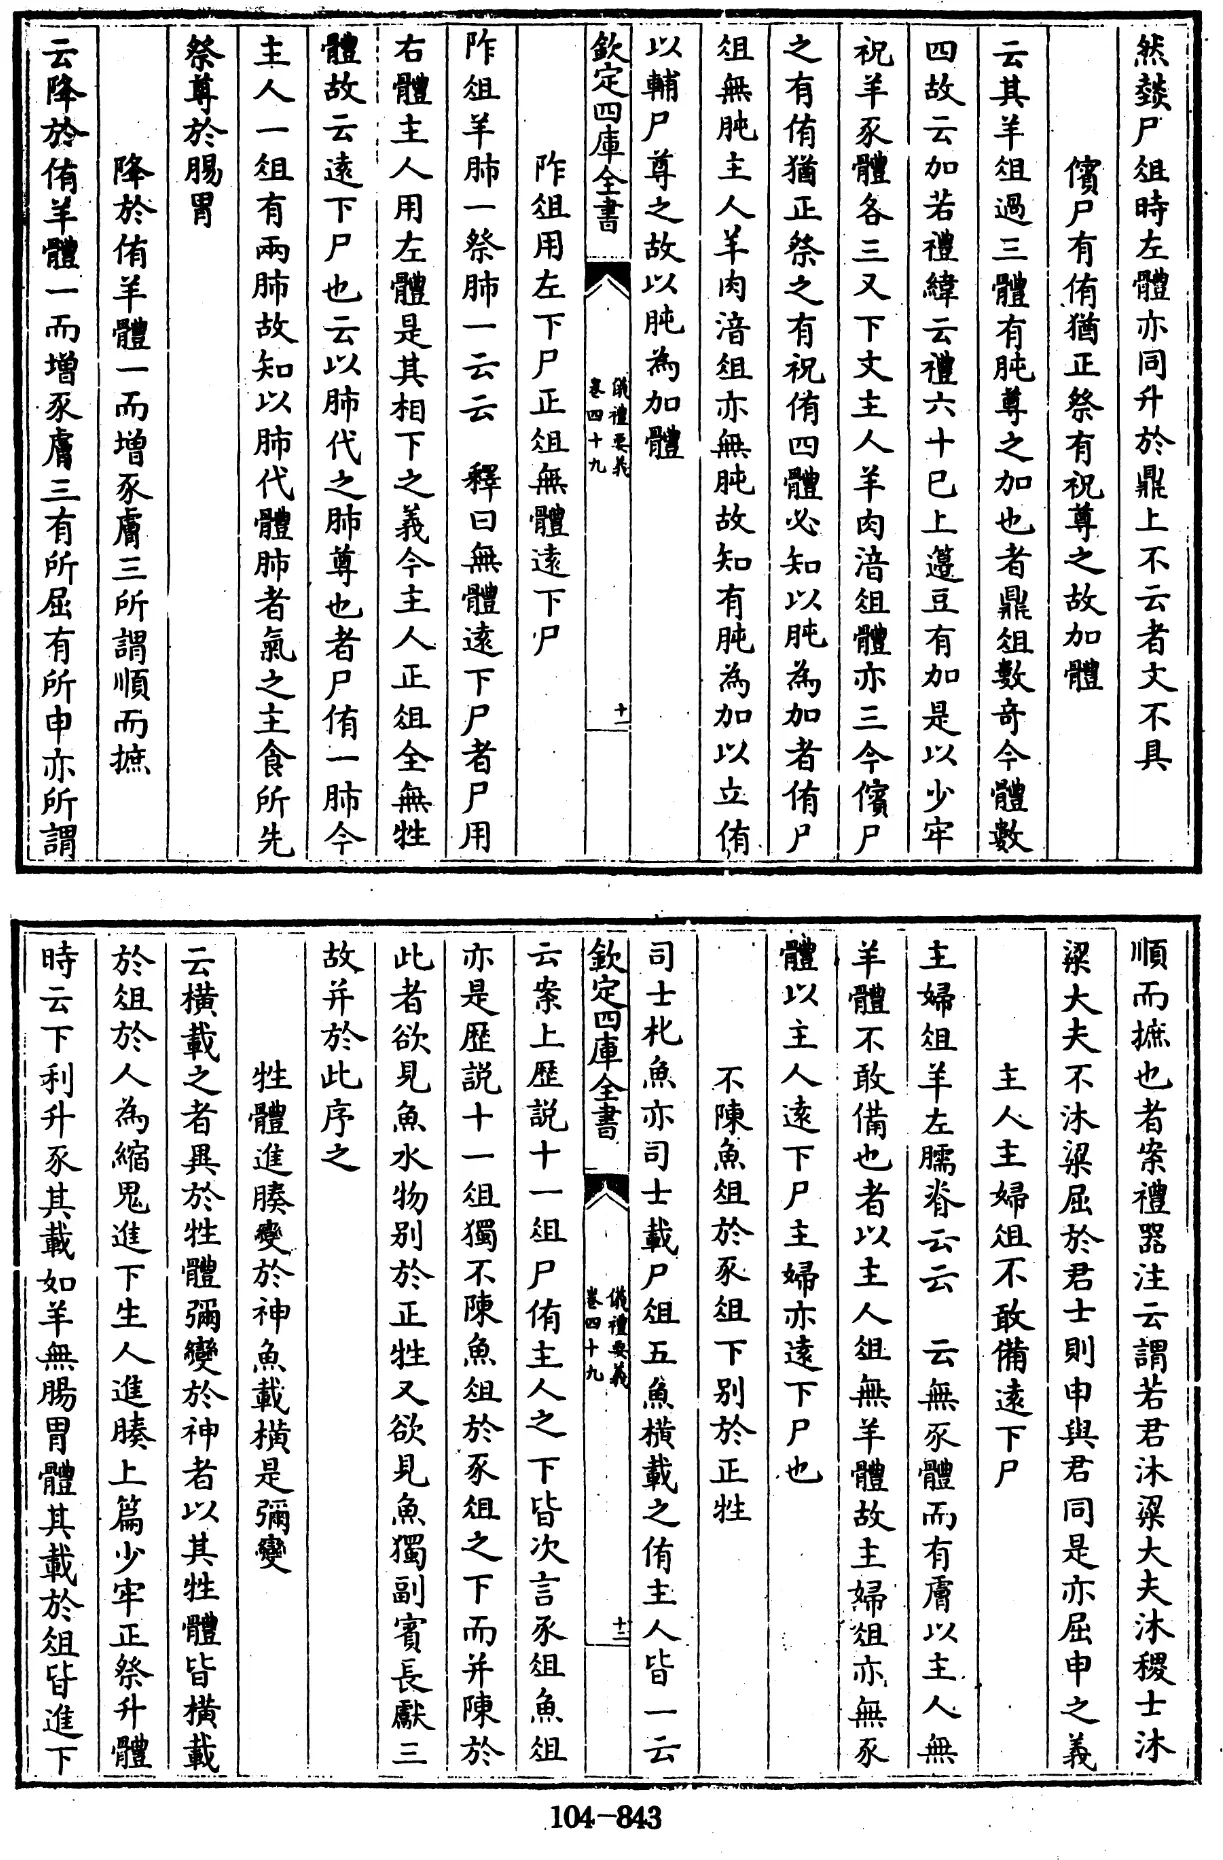 然燅尸俎時左體亦同升於鼎上不云者文不具
儐尸有侑猶正祭有祝尊之故加體
云其羊俎過三體有肫尊之加也者鼎俎數奇今體數
四故云加若禮緯云禮六十已上籩豆有加是以少牢
祝羊豕體各三又下文主人羊肉湇俎體亦三今儐尸
之有侑猶正祭之有祝侑四體必知以肫為加者侑尸
俎無肫主人羊肉湇俎亦無肫故知有肫為加以立侑
以輔尸尊之故以肫為加體
欽定四庫全書
儀禮要義
卷四十九
十一
阼俎用左下尸正俎無體遠下尸
阼俎羊肺一祭肺一云云 釋曰無體遠下尸者尸用
右體主人用左體是其相下之義今主人正俎全無牲
體故云遠下尸也云以肺代之肺尊也者尸侑一肺今
主人一俎有兩肺故知以肺代體肺者氣之主食所先
祭尊於腸胃
降於侑羊體一而增豕膚三所謂順而摭
云降於侑羊體一而增豕膚三有所屈有所申亦所謂
順而摭也者案禮器注云謂若君沐粱大夫沐稷士沐
粱大夫不沐粱屈於君士則申與君同是亦屈申之義
主人主婦俎不敢備遠下尸
主婦俎羊左臑脊云云 云無豕體而有膚以主人無
羊體不敢備也者以主人俎無羊體故主婦俎亦無豕
體以主人遠下尸主婦亦遠下尸也
不陳魚俎於豕俎下別於正牲
司士朼魚亦司士載尸俎五魚橫載之侑主人皆一云
欽定四庫全書
儀禮要義
卷四十九
十二
云案上歷説十一俎尸侑主人之下皆次言豕俎魚俎
亦是歷説十一俎獨不陳魚俎於豕俎之下而并陳於
此者欲見魚水物別於正牲又欲見魚獨副賓長獻三
故并於此序之
牲體進腠變於神魚載橫是彌變
云橫載之者異於牲體彌變於神者以其牲體皆橫載
於俎於人為縮鬼進下生人進腠上篇少牢正祭升體
時云下利升豕其載如羊無腸胃體其載於俎皆進下
104-843